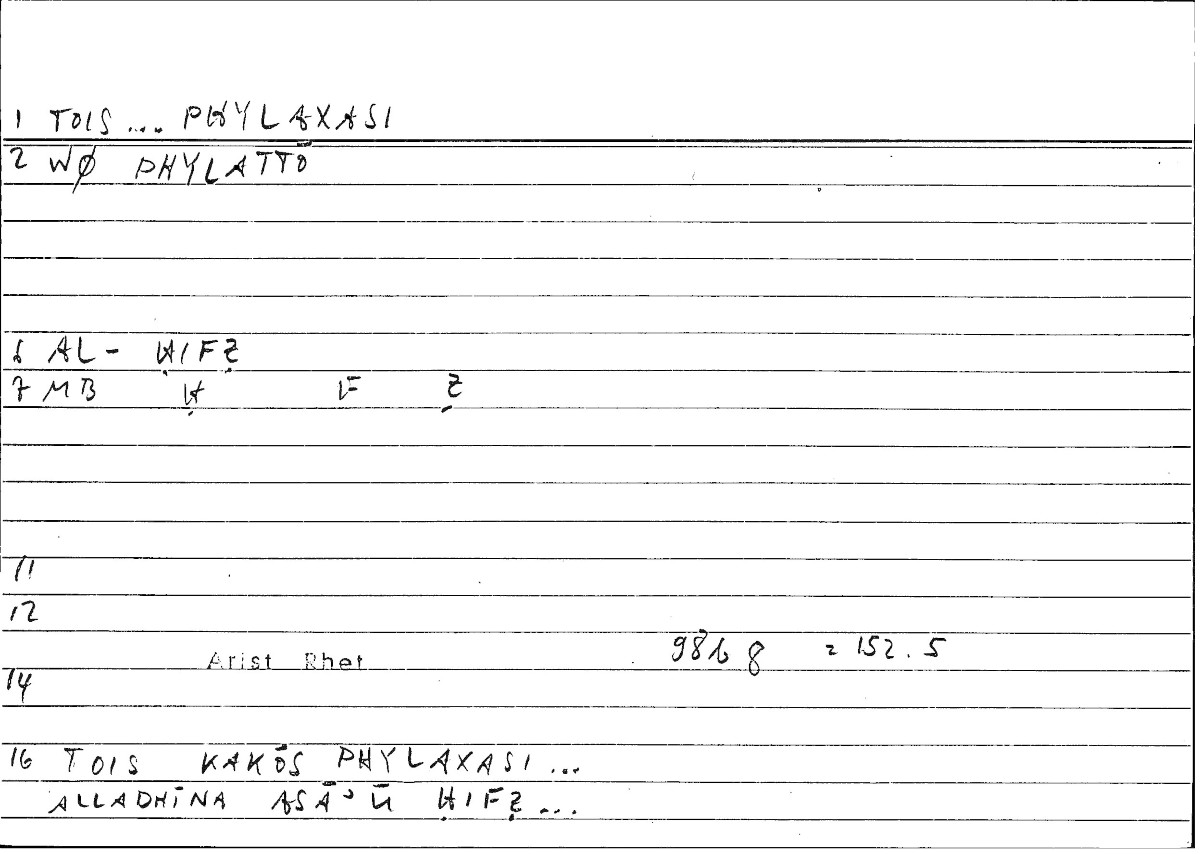 1 TOIS .... PHYLAXASI
2 WØ PHYLATTŌ
6 AL - ḤIFẒ
7 MB Ḥ F Ẓ
11
12
Arist Rhet 986 8 = 152.5
14
16 TOIS KAKŌS PHYLAXASI ...
ALLADHĪNA ASĀʾŪ ḤIFẒ ...